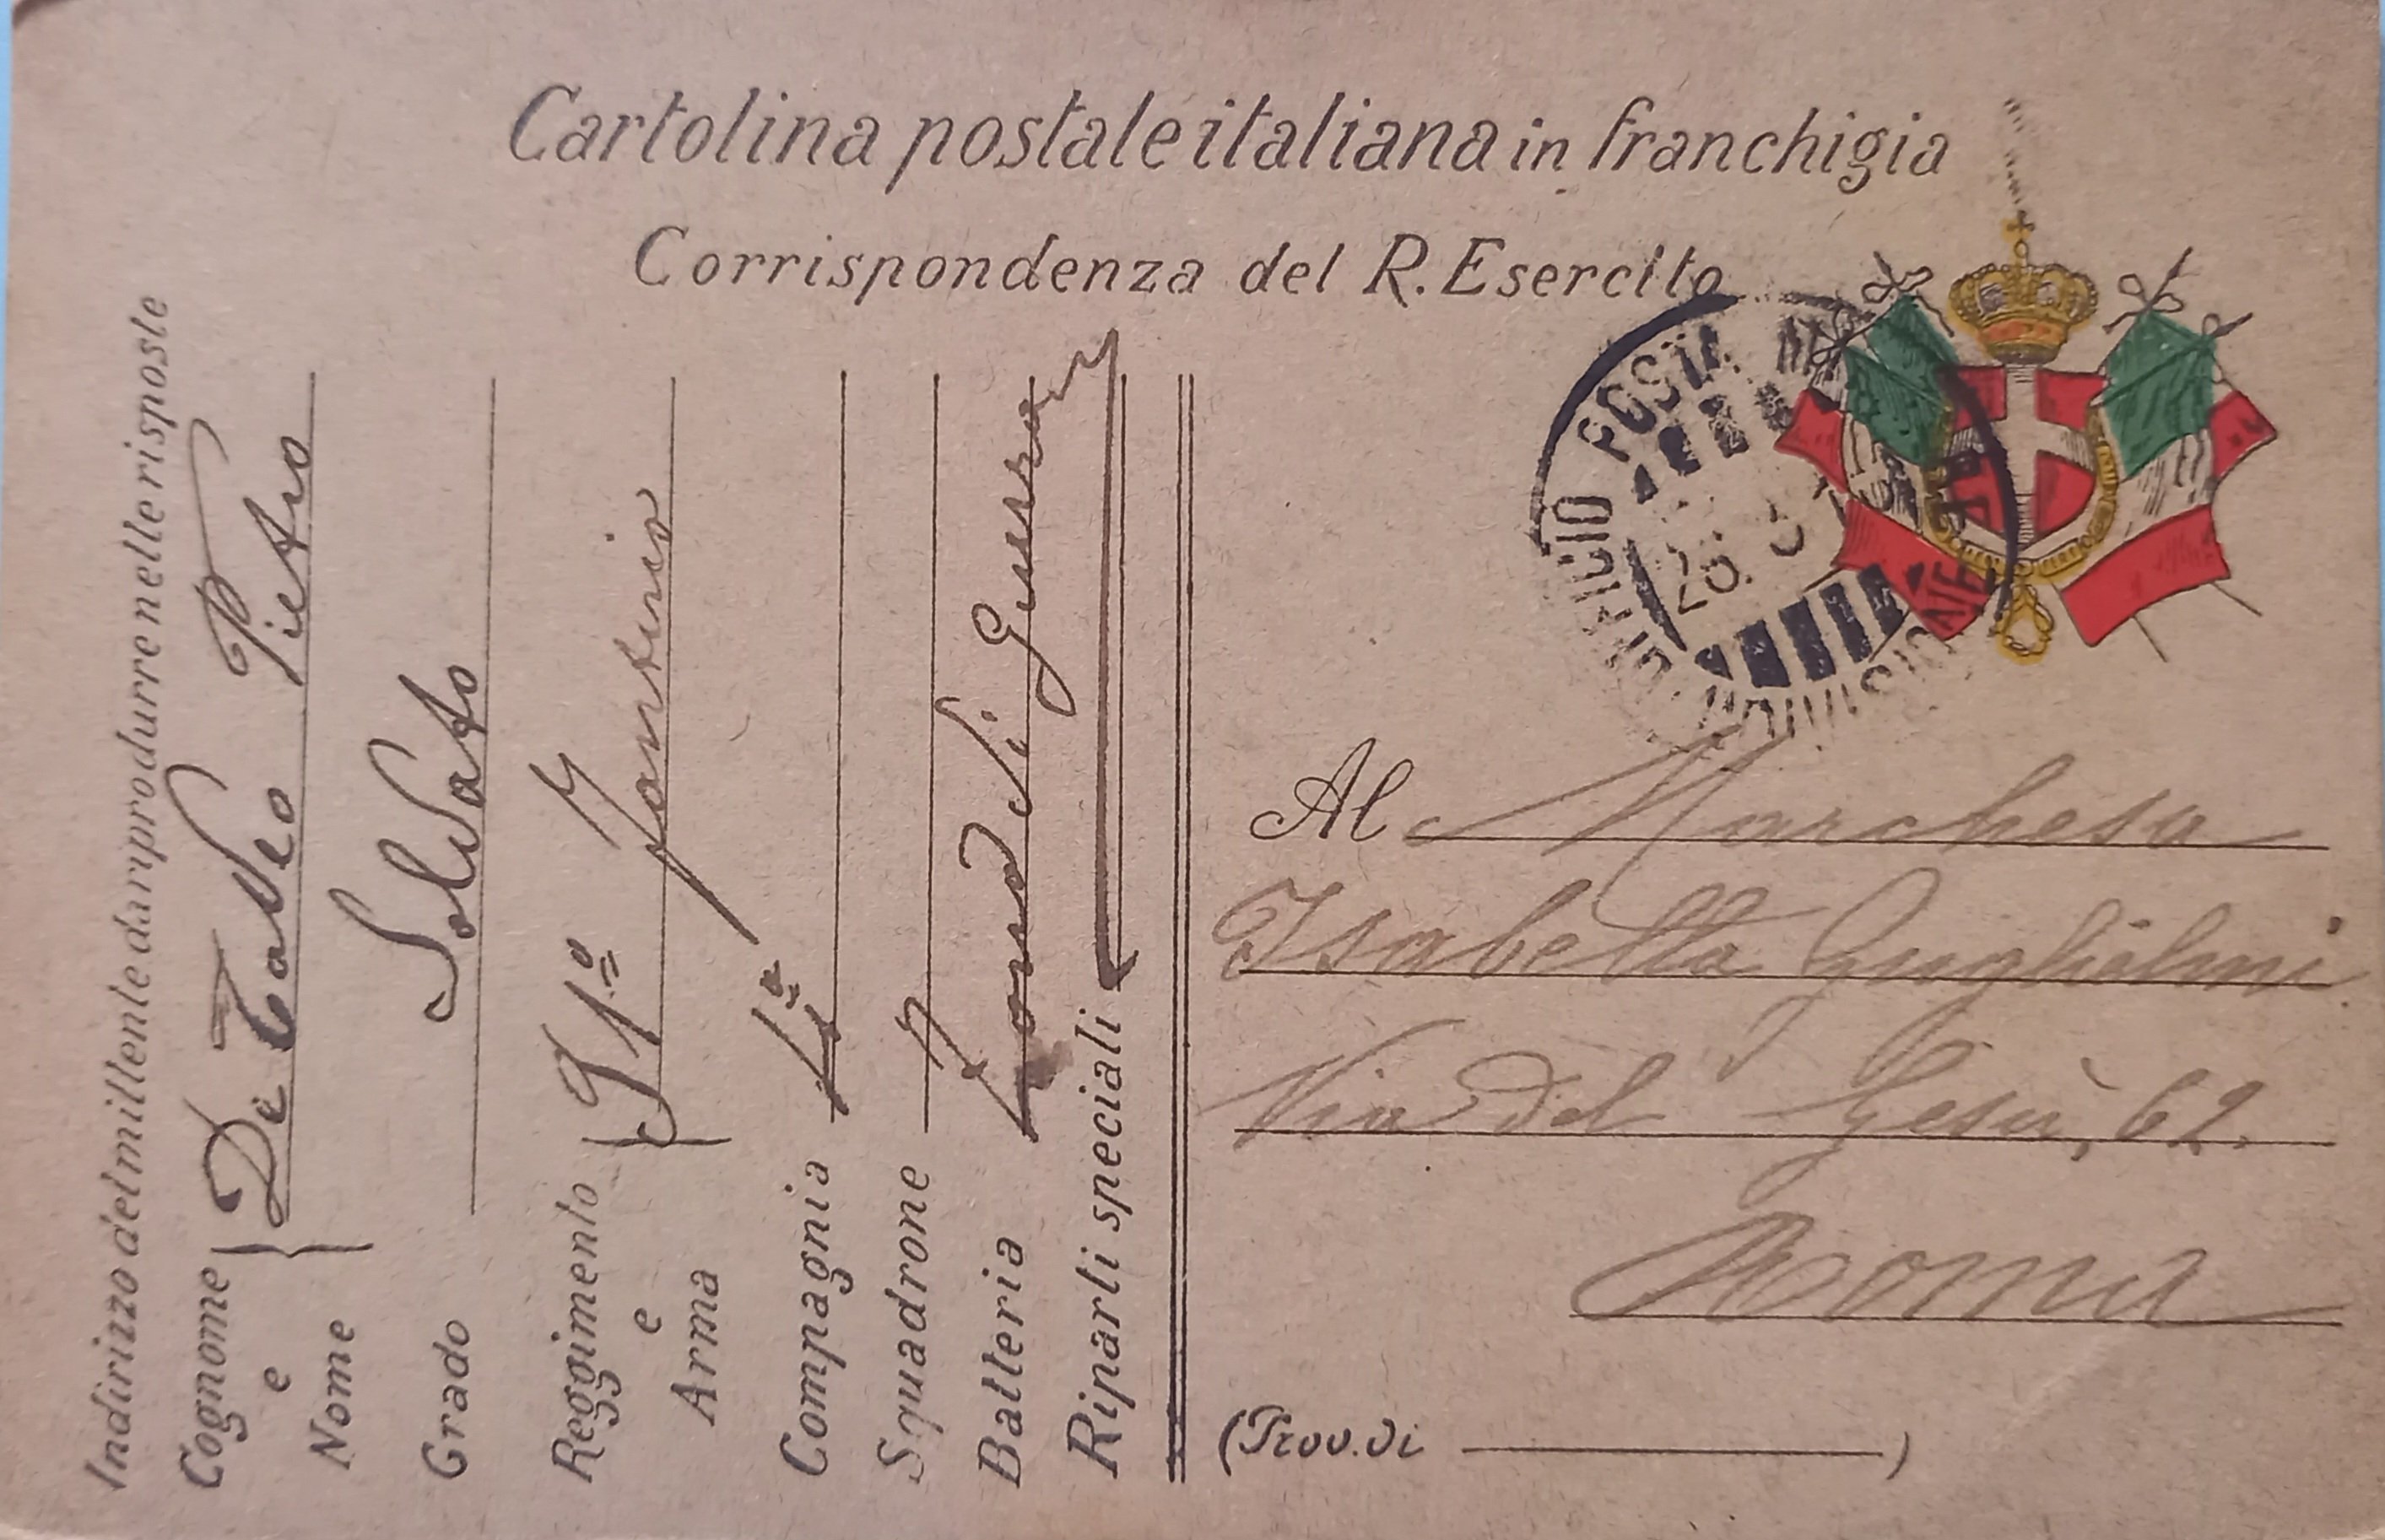 Cartolina postale italiana in franchigia
Corrispondenza del R. Esercito
Indirizzo del mittente da riprodurre nelle risposte
Cognome e Nome De Tadeo Pietro
Grado Soldato
Reggimento e Arma 51º Fanteria
Compagnia 4ª
Squadrone
Batteria Zona di Guerra
Riparti speciali
POSTA MILITARE
DIVISIONE
Al Marchesa
Isabella Guglielmi
Via del Gesù, 62.
Roma
(Prov. di )